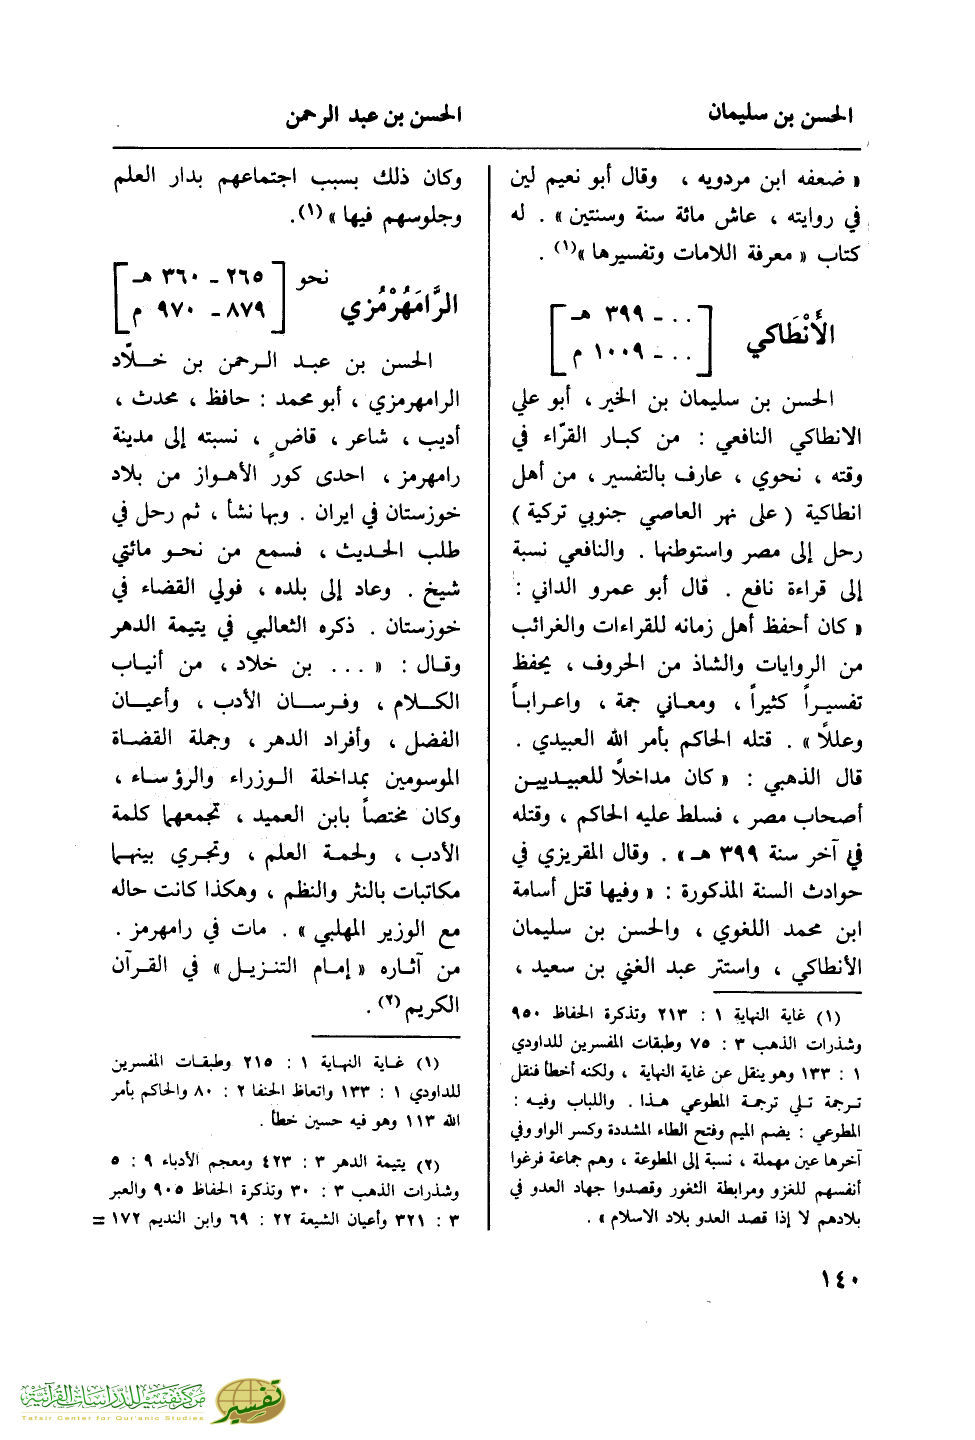 الحسن بن سليمان
الحسن بن عبد الرحمن
« ضعفه ابن مردويه ، وقال أبو نعيم لين
في روايته ، عاش مائة سنة وسنتين » . له
كتاب « معرفة اللامات وتفسيرها »(١) .
الأَنْطَاكي
[ . . ـ ٣٩٩ هـ
. . ـ ١٠٠٩ م ]
الحسن بن سليمان بن الخير ، أبو علي
الانطاكي النافعي : من كبار القرّاء في
وقته ، نحوي ، عارف بالتفسير ، من أهل
انطاكية ( على نهر العاصي جنوبي تركية )
رحل إلى مصر واستوطنها . والنافعي نسبة
إلى قراءة نافع . قال أبو عمرو الداني :
« كان أحفظ أهل زمانه للقراءات والغرائب
من الروايات والشاذ من الحروف ، يحفظ
تفسيراً كثيراً ، ومعاني جمة ، واعراباً
وعللاً » . قتله الحاكم بأمر الله العبيدي .
قال الذهبي : « كان مداخلاً للعبيديين
أصحاب مصر ، فسلط عليه الحاكم ، وقتله
في آخر سنة ٣٩٩ هـ » . وقال المقريزي في
حوادث السنة المذكورة : « وفيها قتل أسامة
ابن محمد اللغوي ، والحسن بن سليمان
الأنطاكي ، واستتر عبد الغني بن سعيد ،
(١) غاية النهاية ١ : ٢١٣ وتذكرة الحفاظ ٩٥٠
وشذرات الذهب ٣ : ٧٥ وطبقات المفسرين للداودي
١ : ١٣٣ وهو ينقل عن غاية النهاية ، ولكنه أخطأ فنقل
ترجمة تلي ترجمة المطوعي هذا . واللباب وفيه :
المطوعي : يضم الميم وفتح الطاء المشددة وكسر الواو وفي
آخرها عين مهملة ، نسبة إلى المطوعة ، وهم جماعة فرغوا
أنفسهم للغزو ومرابطة الثغور وقصدوا جهاد العدو في
بلادهم لا إذا قصد العدو بلاد الاسلام » .
وكان ذلك بسبب اجتماعهم بدار العلم
وجلوسهم فيها » (١).
الرَّامَهُرْمُزي
نحو [ ٢٦٥ ـ ٣٦٠ هـ
٨٧٩ ـ ٩٧٠ م ]
الحسن بن عبد الرحمن بن خلّاد
الرامهرمزي ، أبو محمد : حافظ ، محدث ،
أديب ، شاعر ، قاضٍ ، نسبته إلى مدينة
رامهرمز ، احدى كور الأهواز من بلاد
خوزستان في ايران . وبها نشأ ، ثم رحل في
طلب الحديث ، فسمع من نحو مائتي
شيخ . وعاد إلى بلده ، فولي القضاء في
خوزستان . ذكره الثعالبي في يتيمة الدهر
وقال : « ... بن خلاد ، من أنياب
الكلام ، وفرسان الأدب ، وأعيان
الفضل ، وأفراد الدهر ، وجملة القضاة
الموسومين بمداخلة الوزراء والرؤساء ،
وكان مختصاً بابن العميد ، تجمعهما كلمة
الأدب ، ولحمة العلم ، وتجري بينهما
مكاتبات بالنثر والنظم ، وهكذا كانت حاله
مع الوزير المهلبي » . مات في رامهرمز .
من آثاره « إمام التنزيل » في القرآن
الكريم(٢) .
(١) غاية النهاية ١ : ٢١٥ وطبقات المفسرين
للداودي ١ : ١٣٣ واتعاظ الحنفا ٢ : ٨٠ والحاكم بأمر
الله ١١٣ وهو فيه حسين خطأ .
(٢) يتيمة الدهر ٣ : ٤٢٣ ومعجم الأدباء ٩ : ٥
وشذرات الذهب ٣ : ٣٠ وتذكرة الحفاظ ٩٠٥ والعبر
٣ : ٣٢١ وأعيان الشيعة ٢٢ : ٦٩ وابن النديم ١٧٢ =
١٤٠
مركز تفسير للدراسات القرآنية
Tafsir Center for Qur'anic Studies
تفسير